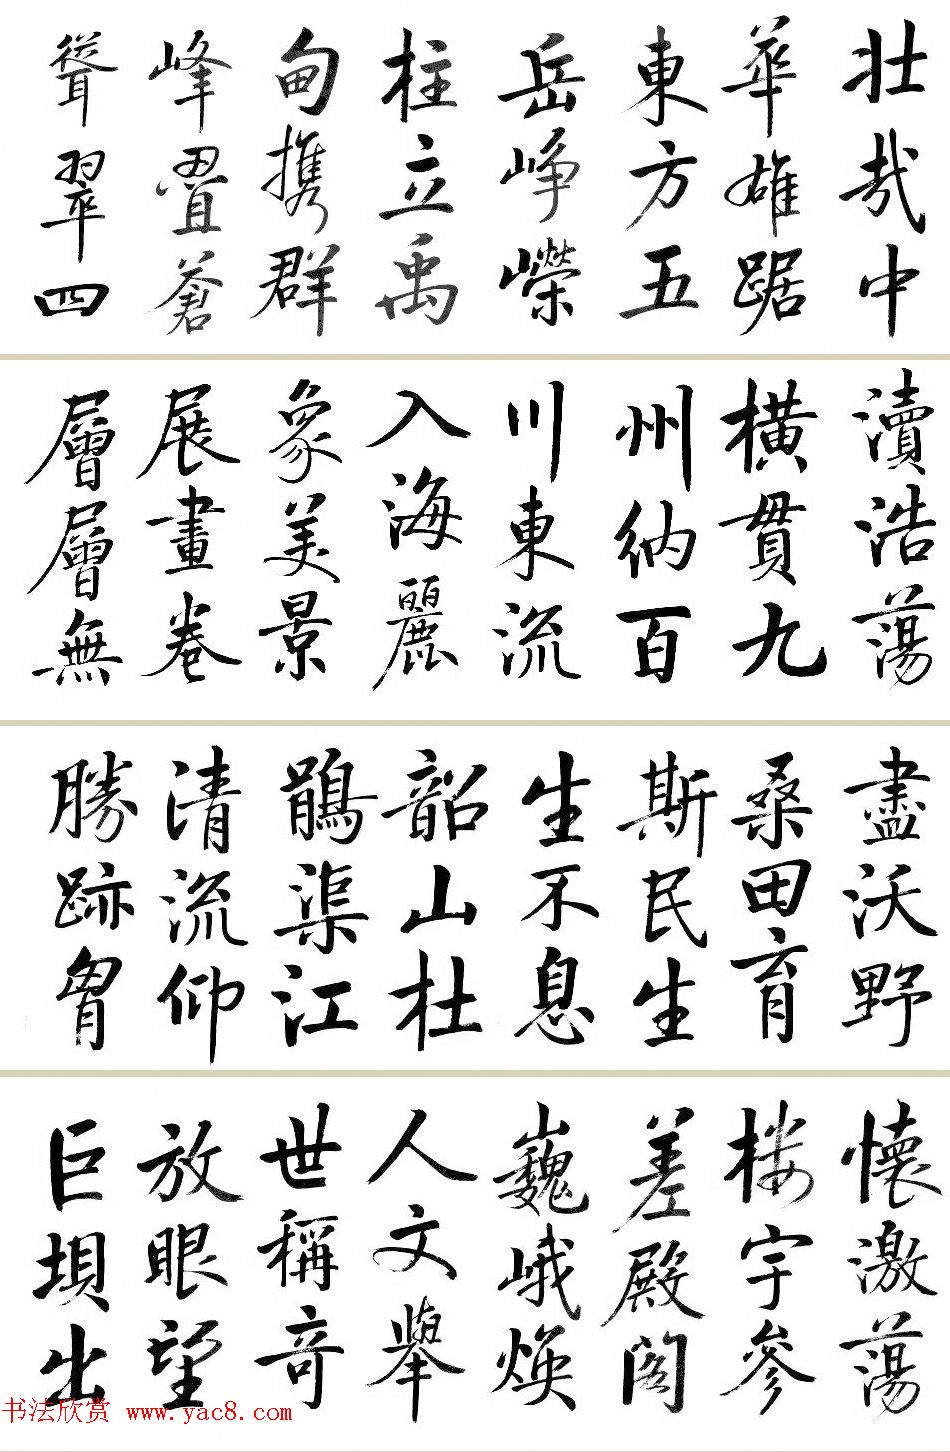 壮哉中
華雄踞
東方五
岳峥嶸
柱立禹
甸携群
峰疊蒼
聳翠四
瀆浩蕩
橫貫九
州纳百
川東流
入海麗
象美景
展畫卷
層層無
盡沃野
桑田育
斯民生
生不息
韶山杜
鵑渠江
清流仰
勝跡胷
懷激蕩
楼宇參
差殿阁
巍峨焕
人文舉
世稱奇
放眼望
巨坝出
书法欣赏 www.yac8.com